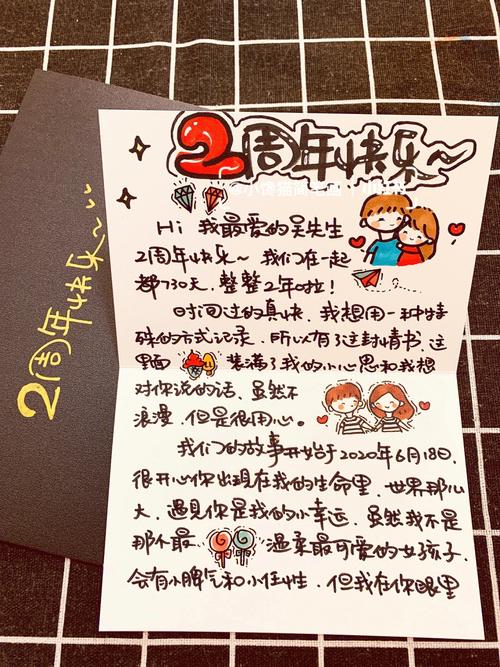 2周年快乐~
2周年快乐~
Hi 我最爱的吴先生
2周年快乐~ 我们在一起
都730天,整整2年啦!
时间过的真快,我想用一种特
殊的方式记录,所以有了这封情书,这
里面 装满了我的小心思和我想
对你说的话,虽然不
浪漫,但是很用心。
我们的故事开始于2020年6月18日,
很开心你出现在我的生命里,世界那么
大,遇见你是我的小幸运,虽然我不是
那个最 温柔最可爱的女孩子,
会有小脾气和小任性,但我在你眼里